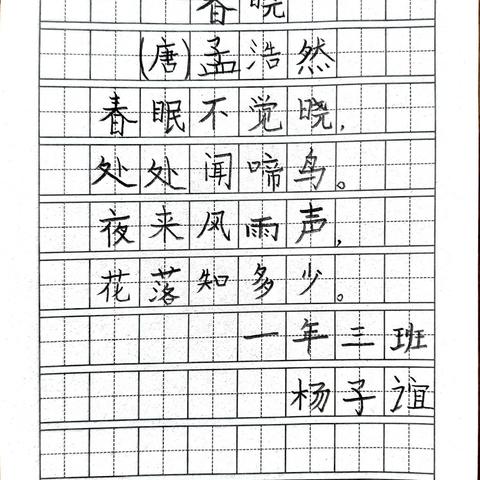 春晓
(唐)孟浩然
春眠不觉晓,
处处闻啼鸟。
夜来风雨声,
花落知多少。
一年三班
杨子谊